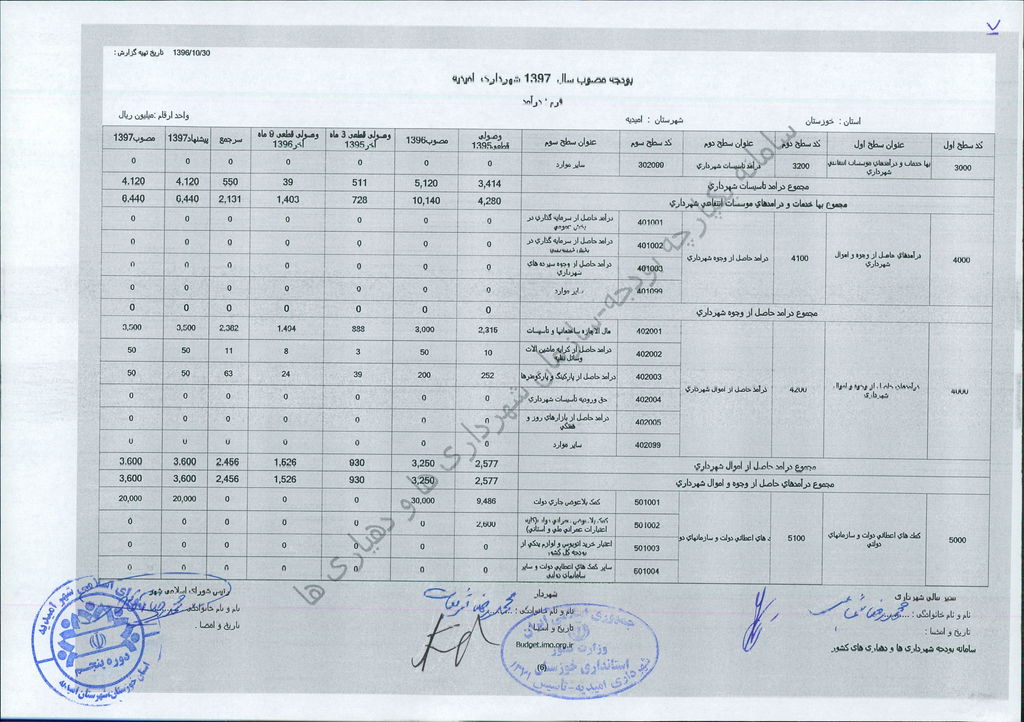 ۷
تاریخ تهیه گزارش : 1396/10/30
بودجه مصوب سال 1397 شهرداری امیدیه
فرم : درآمد
استان : خوزستان شهرستان : امیدیه واحد ارقام :میلیون ریال
کد سطح اول عنوان سطح اول کد سطح دوم عنوان سطح دوم کد سطح سوم عنوان سطح سوم وصولی قطعی1395 مصوب1396 وصولی قطعی 3 ماه آخر1395 وصولی قطعی 9 ماه 1396 سرجمع پیشنهاد1397 مصوب1397
3000 بها خدمات و درآمدهای موسسات انتفاعی شهرداری 3200 درآمد تاسیسات شهرداری 302099 سایر موارد 0 0 0 0 0 0 0
مجموع درآمد تاسیسات شهرداری 3,414 5,120 511 39 550 4,120 4,120
مجموع بها خدمات و درامدهای موسسات انتفاعی شهرداری 4,280 10,140 728 1,403 2,131 6,440 6,440
4000 درآمدهای حاصل از وجوه و اموال شهرداری 4100 درآمد حاصل از وجوه شهرداری
401001 درآمد حاصل از سرمایه گذاری در بخش عمومی 0 0 0 0 0 0 0
401002 درآمد حاصل از سرمایه گذاری در بخش خصوصی 0 0 0 0 0 0 0
401003 درآمد حاصل از وجوه سپرده های شهرداری 0 0 0 0 0 0 0
401099 سایر موارد 0 0 0 0 0 0 0
مجموع درآمد حاصل از وجوه شهرداری 0 0 0 0 0 0 0
4000 درآمدهای حاصل از وجوه و اموال شهرداری 4200 درآمد حاصل از اموال شهرداری
402001 مال الاجاره ساختمانها و تاسیسات 2,315 3,000 888 1,494 2,382 3,500 3,500
402002 درآمد حاصل از کرایه ماشین آلات وسائل نقلیه 10 50 3 8 11 50 50
402003 درآمد حاصل از پارکینگ و پارکومترها 252 200 39 24 63 50 50
402004 حق ورودیه تأسیسات شهرداری 0 0 0 0 0 0 0
402005 درآمد حاصل از بازارهای روز و هفتگی 0 0 0 0 0 0 0
402099 سایر موارد 0 0 0 0 0 0 0
مجموع درآمد حاصل از اموال شهرداری 2,577 3,250 930 1,526 2,456 3,600 3,600
مجموع درآمدهای حاصل از وجوه و اموال شهرداری 2,577 3,250 930 1,526 2,456 3,600 3,600
5000 کمک های اعطائی دولت و سازمانهای دولتی 5100 ک های اعطائی دولت و سازمانهای دو
501001 کمک بلاعوض جاری دولت 9,486 30,000 0 0 0 20,000 20,000
501002 کمک بلاعوض عمرانی دولت (کلیه اعتبارات عمرانی ملی و استانی) 2,600 0 0 0 0 0 0
501003 اعتبار خرید اتوبوس و لوازم یدکی از بودجه کل کشور 0 0 0 0 0 0 0
501004 سایر کمک های اعطایی دولت و سایر سازمانهای دولتی 0 0 0 0 0 0 0
سامانه یکپارچه بودجه-سازمان شهرداری ها و دهیاری ها
مدیر مالی شهرداری شهردار رئیس شورای اسلامی شهر
نام و نام خانوادگی : نام و نام خانوادگی : نام و نام خانوادگی
تاریخ و امضا : تاریخ و امضا : تاریخ و امضا .
سامانه بودجه شهرداری ها و دهیاری های کشور Budget.imo.org.ir
(6)
جمهوری اسلامی ایران
وزارت کشور
استانداری خوزستان
شهرداری امیدیه-تأسیس
شورای اسلامی شهر امیدیه
دوره پنجم
استان خوزستان،شهرستان امیدیه